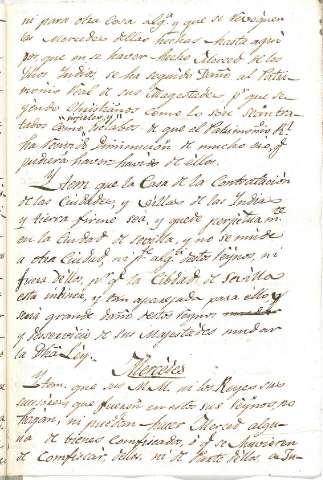 ni para otra cosa algª y que se revoquen
las Mercedes dellas hechas hasta aqui
por que en se haver hecho Merced de los
dhos Indios, se ha seguido daño al Patri-
monio Real de sus Magestades pr que se-
yendo Christianos como lo son son tra-
tados como Infieles y esclabos de que el Patrimonio Rl
ha tenido diminucion de mucho oro, q
pudiera haver havido de ellos.
Ytem que la Casa de la Contratación
de las Ciudades, y Villas de las Indias
y tierra firme sea, y quede perpetuamte
en la Ciudad de Sevilla, y no se mude
a otra Ciudad, ni pte algª destos Reynos, ni
fuera dellos, ps q la Cibdad de Sevilla
esta indinia, y tan aparejada para ello, y
seria grande daño destos Reynos
y deservicio de sus Majestades mudar
la dha Ley.
Mercedes
Ytem, que sus MM. ni los Reyes sus
sucesores que fueren en estos sus Reynos, no
hagan, ni puedan hacer Merced algu-
na de bienes comfiscados, ó q se huvieren
de comfiscar, dellos, ni de Parte dellos, a Ju-